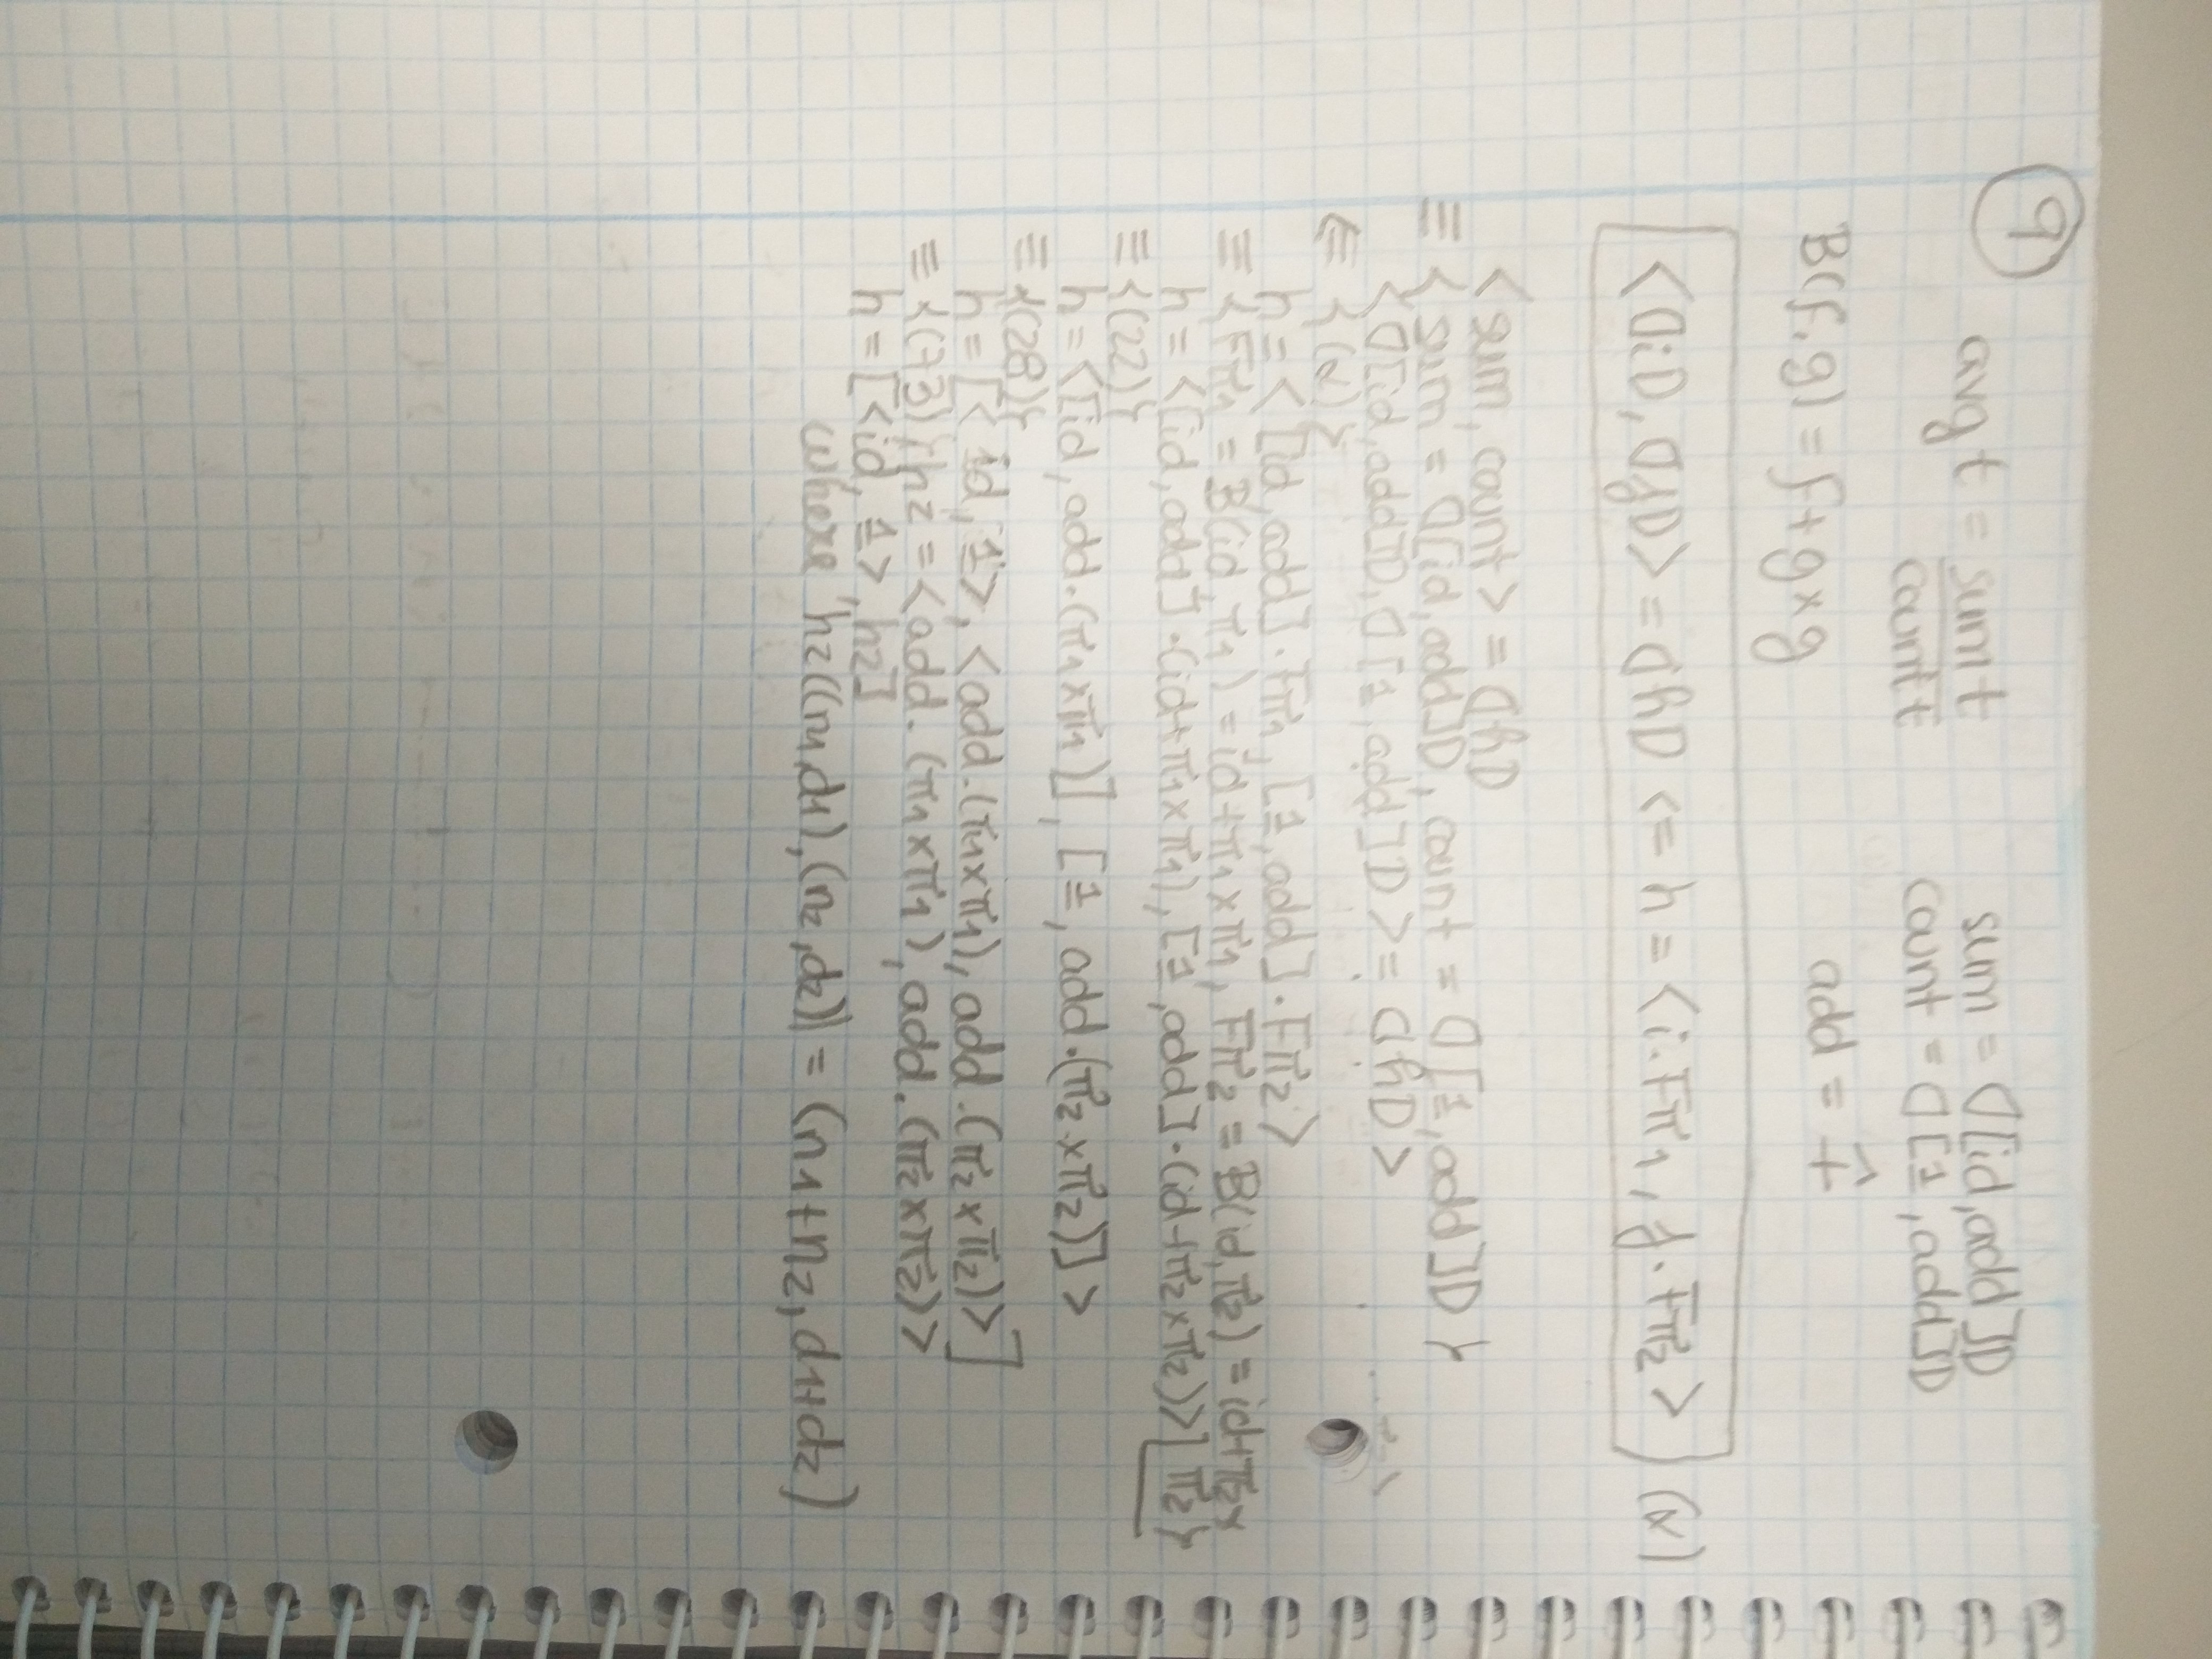 9
avg t = sum t / count t
sum = ⦇[id, add]⦈
count = ⦇[1, add]⦈
B(f, g) = f + g × g
add = +̂
<⦇i⦈, ⦇j⦈> = ⦇h⦈ <= h = <i · Fπ1, j · Fπ2> (α)
<sum, count> = ⦇h⦈
≡ { sum = ⦇[id, add]⦈, count = ⦇[1, add]⦈ }
<⦇[id, add]⦈, ⦇[1, add]⦈> = ⦇h⦈>
⇐ {(α)}
h = <[id, add] · Fπ1, [1, add] · Fπ2>
≡ {Fπ1 = B(id, π1) = id + π1 × π1, Fπ2 = B(id, π2) = id + π2 ×
h = <[id, add] · (id + π1 × π1), [1, add] · (id + π2 × π2)> π2}
≡ {(22)}
h = <[id, add · (π1 × π1)], [1, add · (π2 × π2)]>
≡ {(28)}
h = [<id, 1>, <add · (π1 × π1), add · (π2 × π2)>]
≡ {(73); h2 = <add · (π1 × π1), add · (π2 × π2)>
h = [<id, 1>, h2]
where h2((n1, d1), (n2, d2)) = (n1 + n2, d1 + d2)